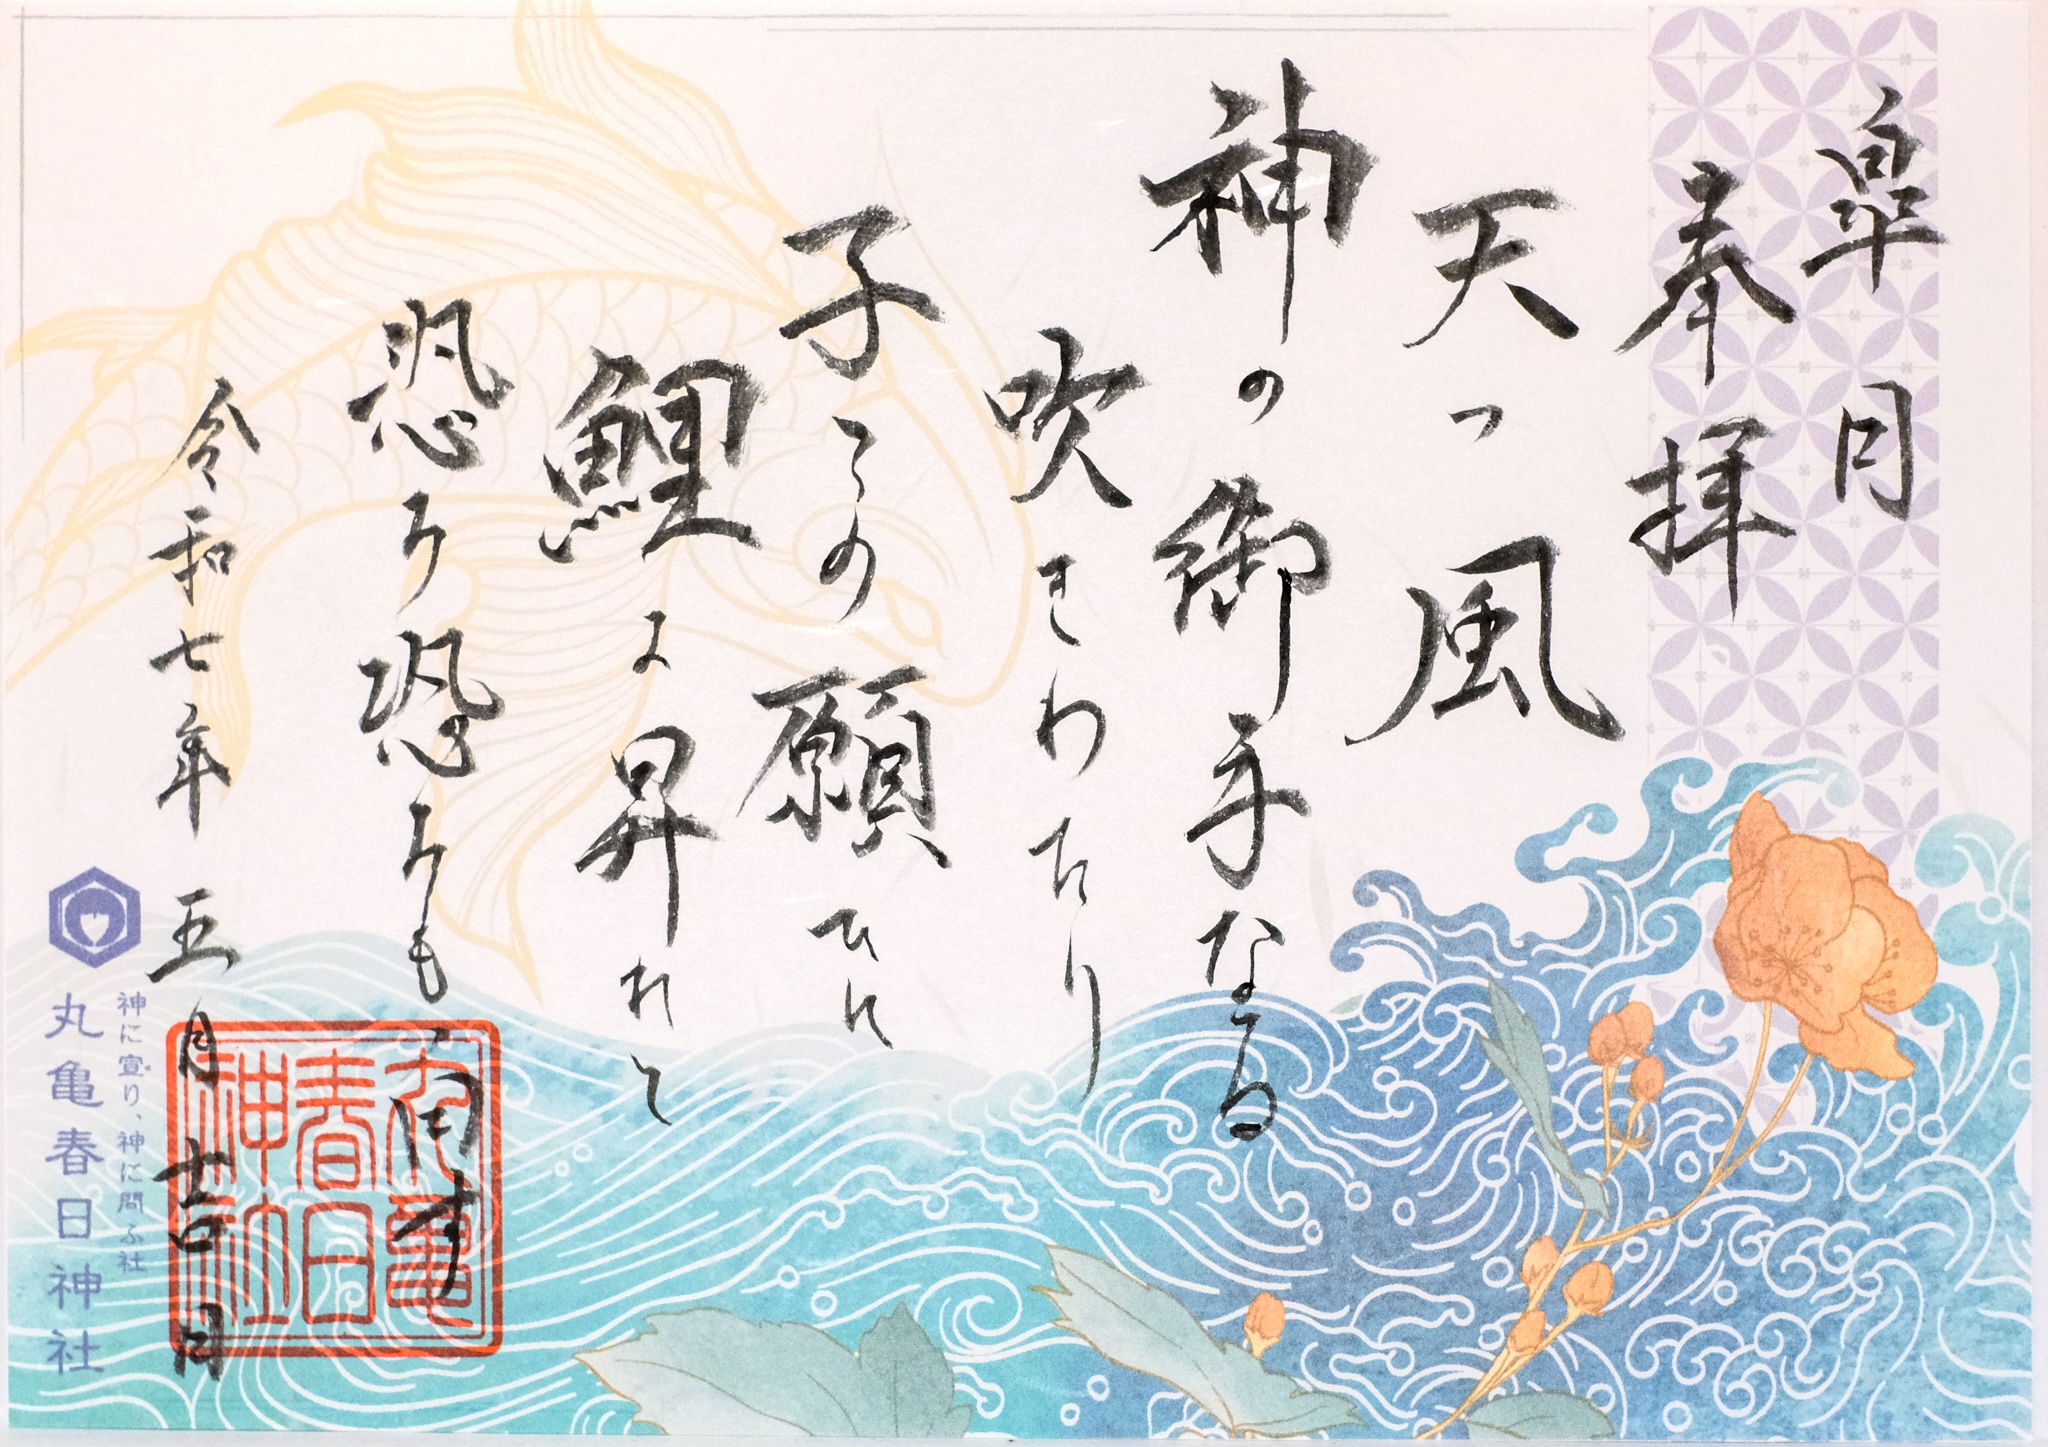 皐月
奉拝
天つ風
神の御手なる
吹きわたり
子らの願ひに
鯉よ昇れと
恐み恐みも白す
令和七年五月吉日
丸亀
春日
神社
神に宣り、神に問ふ社
丸亀春日神社